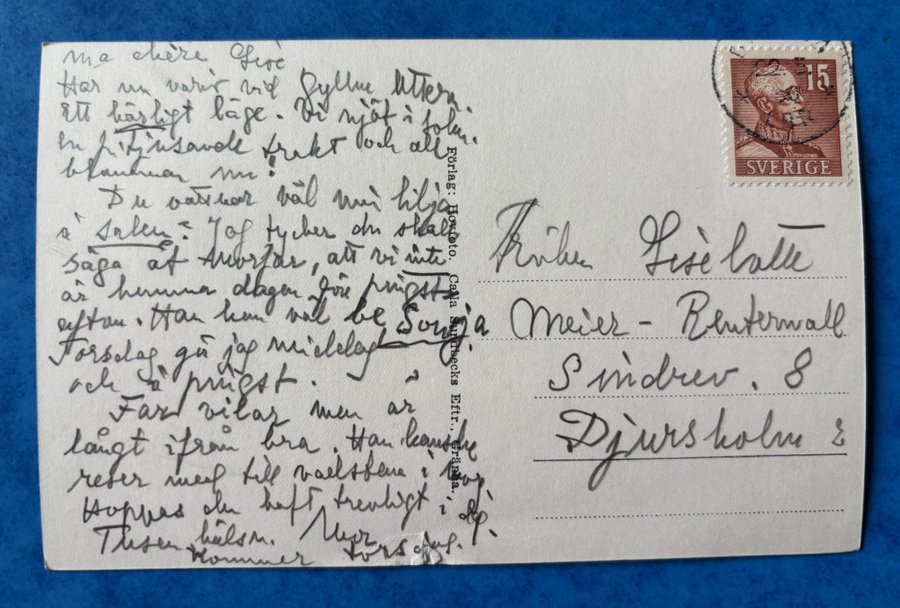 ma chère Gisè
Har nu varit vid Gyllne Uttern.
ett härligt läge. Vi njöt i
En förtjusande trakt och allt
blommar nu!
Du vattnar väl min lilja
i salen? Jag tycker du skall
säga åt Morfar, att vi inte
är hemma dagen före pingst-
afton. Han kan väl be Sonja
Torsdag gör jag middag
och å pingst.
Far vilar men är
långt ifrån bra. Han kanske
reser med till i
Hoppas du haft trevligt i
Tusen hälsn. Mor
Kommer tors
Förlag: Hovfoto. Calla Sundbecks Eftr., Gränna.
22. 5.
15
SVERIGE
Fröken Gisèlotte
Meier - Renterwall
Sindrev. 8
Djursholm 2